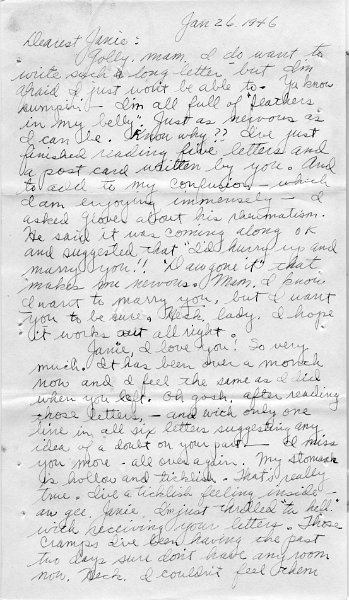 Jan 26, 1946
Dearest Janie:
Golly, mam, I do want to
write such a long letter but I'm
afraid I just wont be able to. Ya know
sumpin - I'm all full of "feathers
in my belly". Just as nervous as
I can be. Know why?? I've just
finished reading five letters and
a post card written by you. And
to add to my confusion - which
I am enjoying immensely - I
asked about his
He said it was coming along OK
and suggested that "I'd hurry up and
marry you!! "Dawgone it" that
makes me nervous. Mam, I know
I want to marry you, but I want
you to be sure. Heck, lady, I hope
it works out all right.
Janie, I love you! So very
much. It has been over a month
now and I feel the same as I did
when you left. Oh gosh, after reading
those letters, - and with only one
line in all six letters suggesting any
idea of a doubt on your part - I miss
you more - all over again. My stomach
is hollow and ticklish. That's really
true. I've a ticklish feeling inside -
aw gee, Janie, I'm just thrilled "to hell"
with receiving your letters. Those
cramps I've been having the past
two days sure don't have any room
now. Heck, I couldn't feel them